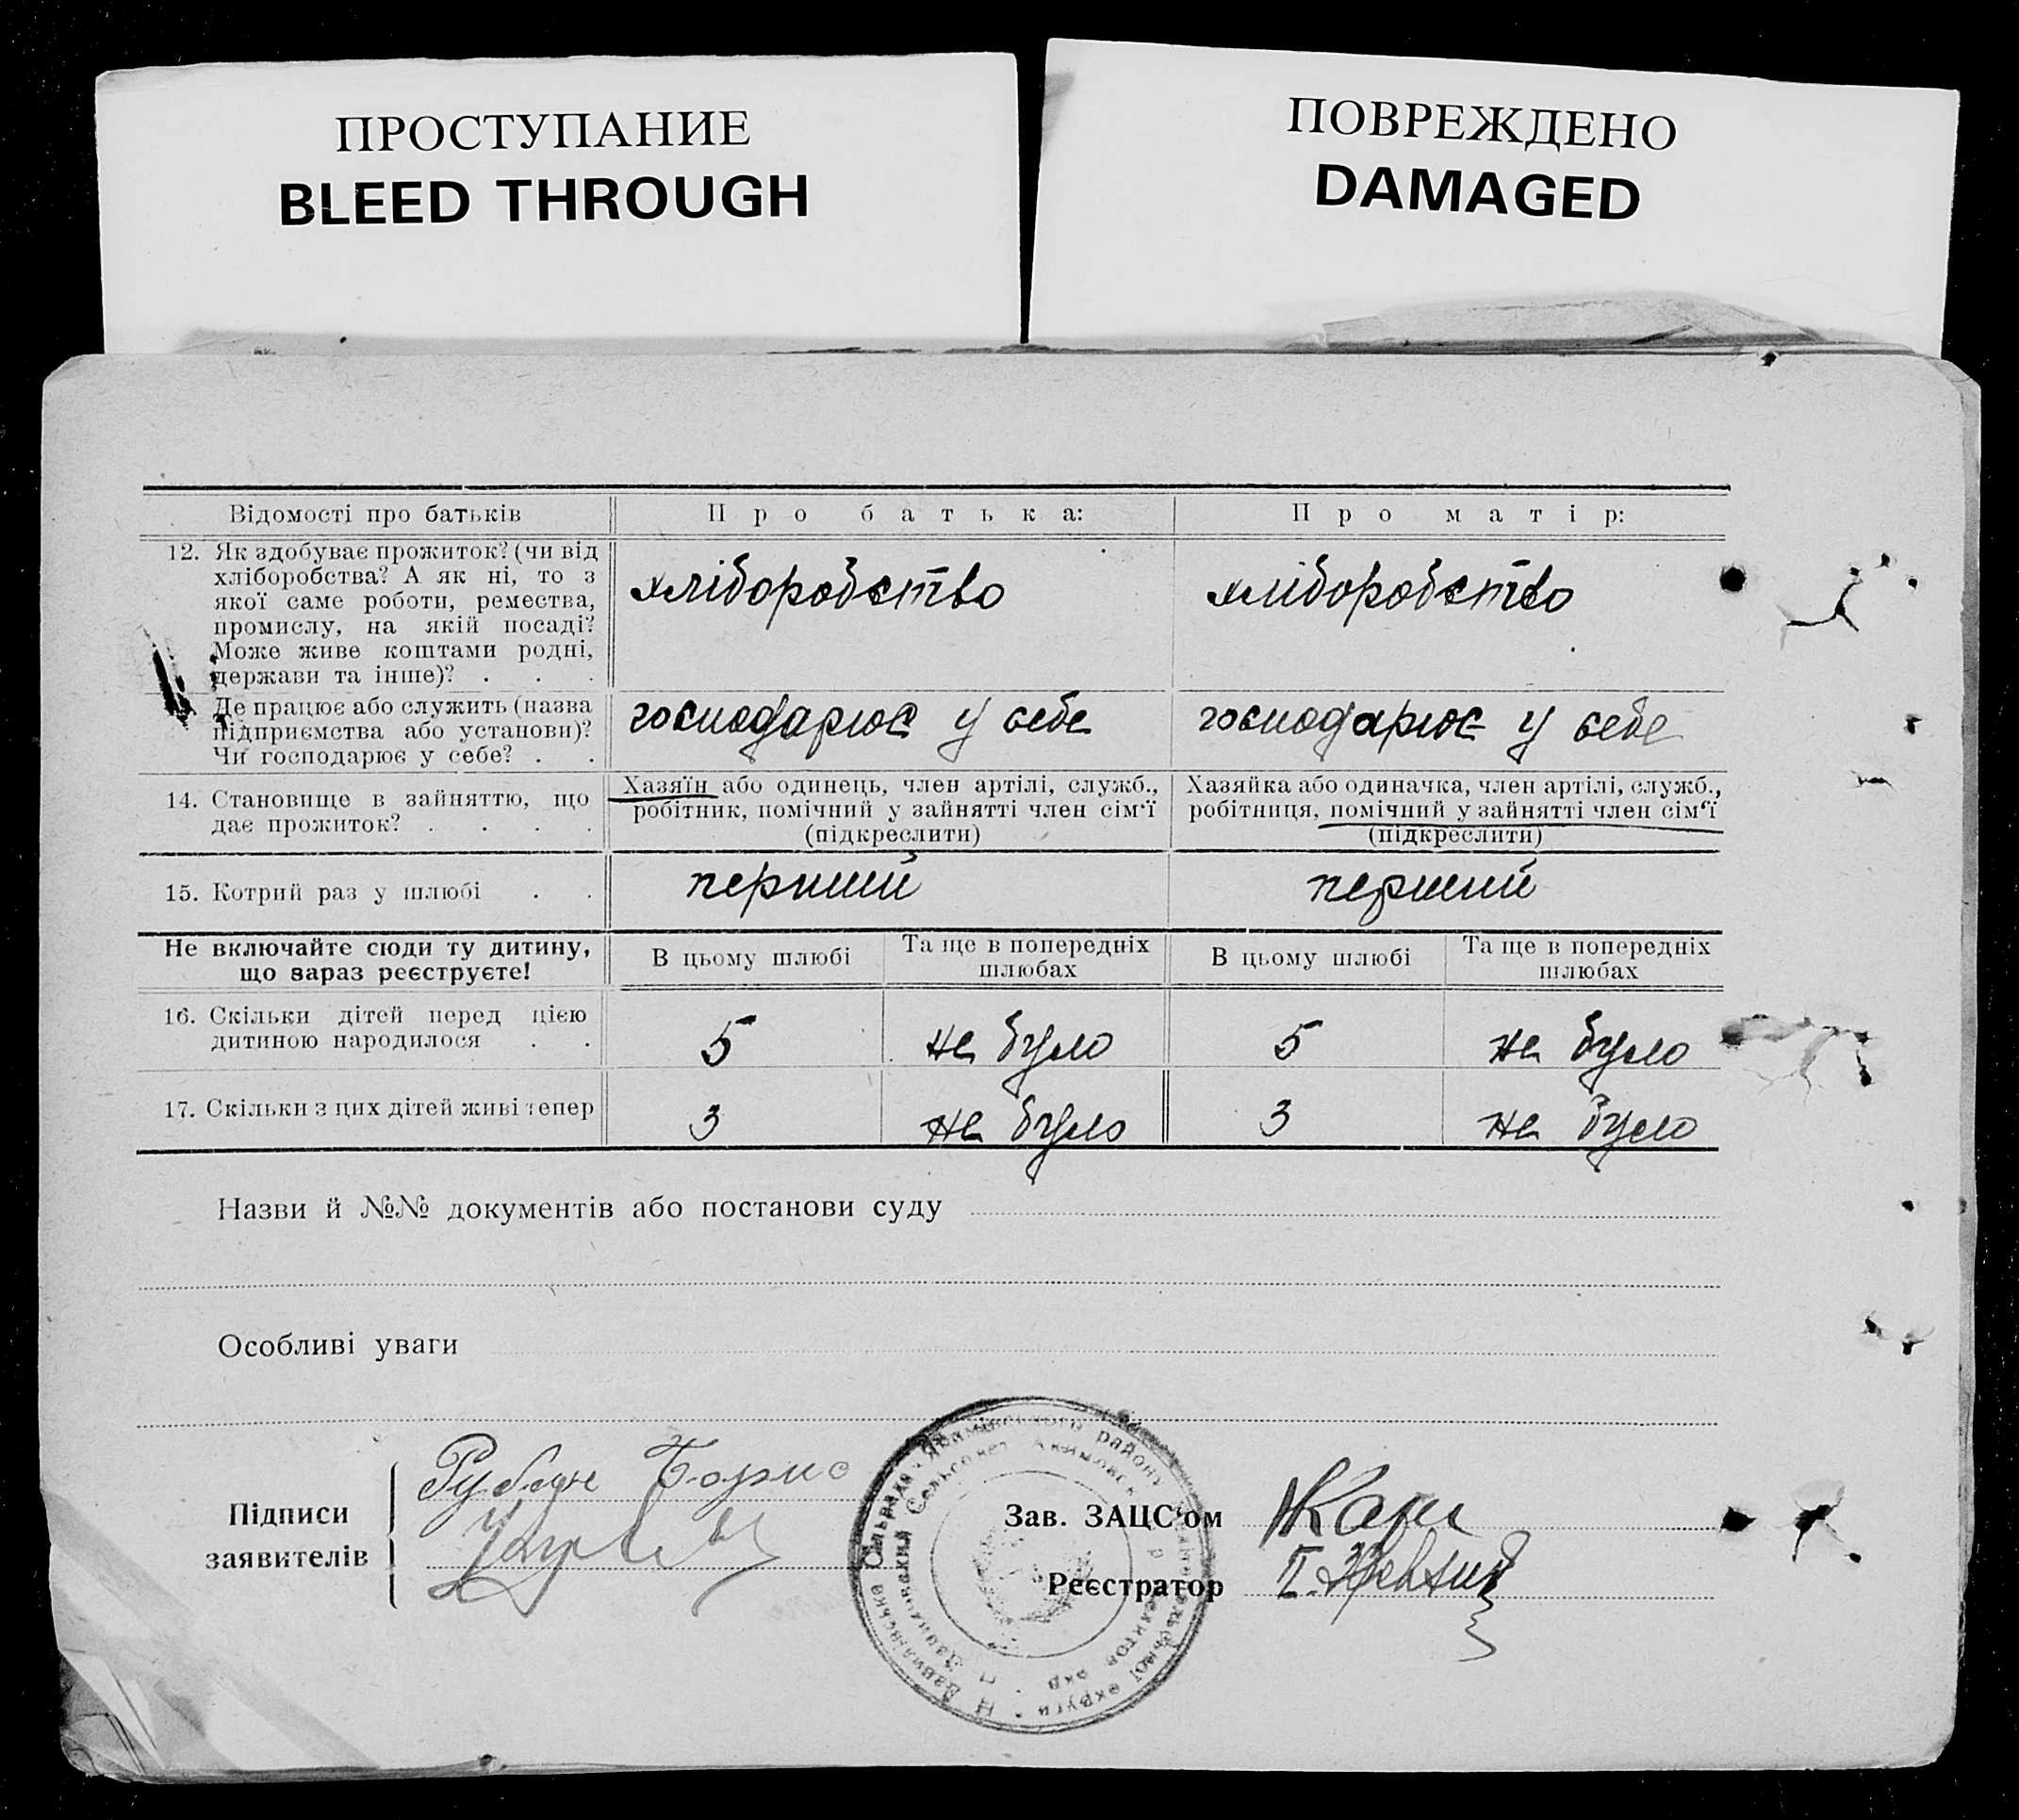 ПРОСТУПАНИЕ
BLEED THROUGH
ПОВРЕЖДЕНО
DAMAGED
Відомості про батьків
Про батька:
Про матір:
12. Як здобуває прожиток? (чи від
хліборобства? А як ні, то з
якої саме роботи, ремества,
промислу, на якій посаді?
Може живе коштами родні,
держави та інше)? . . .
хліборобство
хліборобство
Де працює або служить (назва
підприємства або установи)?
Чи господарює у себе? . .
господарює у себе
господарює у себе
14. Становище в зайняттю, що
дає прожиток? . . . .
Хазяїн або одинець, член артілі, служб.,
робітник, помічний у зайнятті член сім'ї
(підкреслити)
Хазяйка або одиначка, член артілі, служб.,
робітниця, помічний у зайнятті член сім'ї
(підкреслити)
15. Котрий раз у шлюбі . .
перший
перший
Не включайте сюди ту дитину,
що зараз реєструєте!
В цьому шлюбі
Та ще в попередніх
шлюбах
В цьому шлюбі
Та ще в попередніх
шлюбах
16. Скільки дітей перед цією
дитиною народилося . .
5
не було
5
не було
17. Скільки з цих дітей живі тепер
3
не було
3
не було
Назви й №№ документів або постанови суду
Особливі уваги
Підписи
заявителів
Зав. ЗАЦС'ом
Реєстратор
району
округи